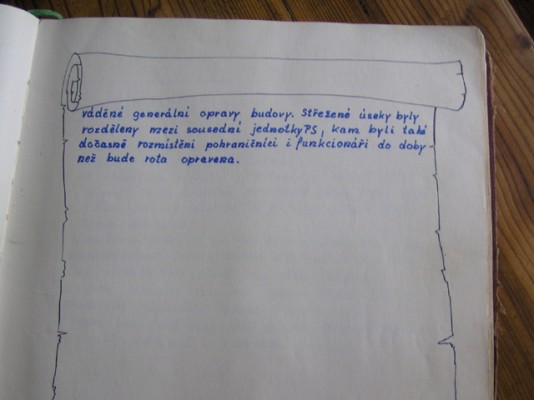 váděné generální opravy budovy. Střežené úseky byly
rozděleny mezi sousední jednotky PS, kam byli také
dočasně rozmístěni pohraničníci i funkcionáři do doby
než bude rota opravena.